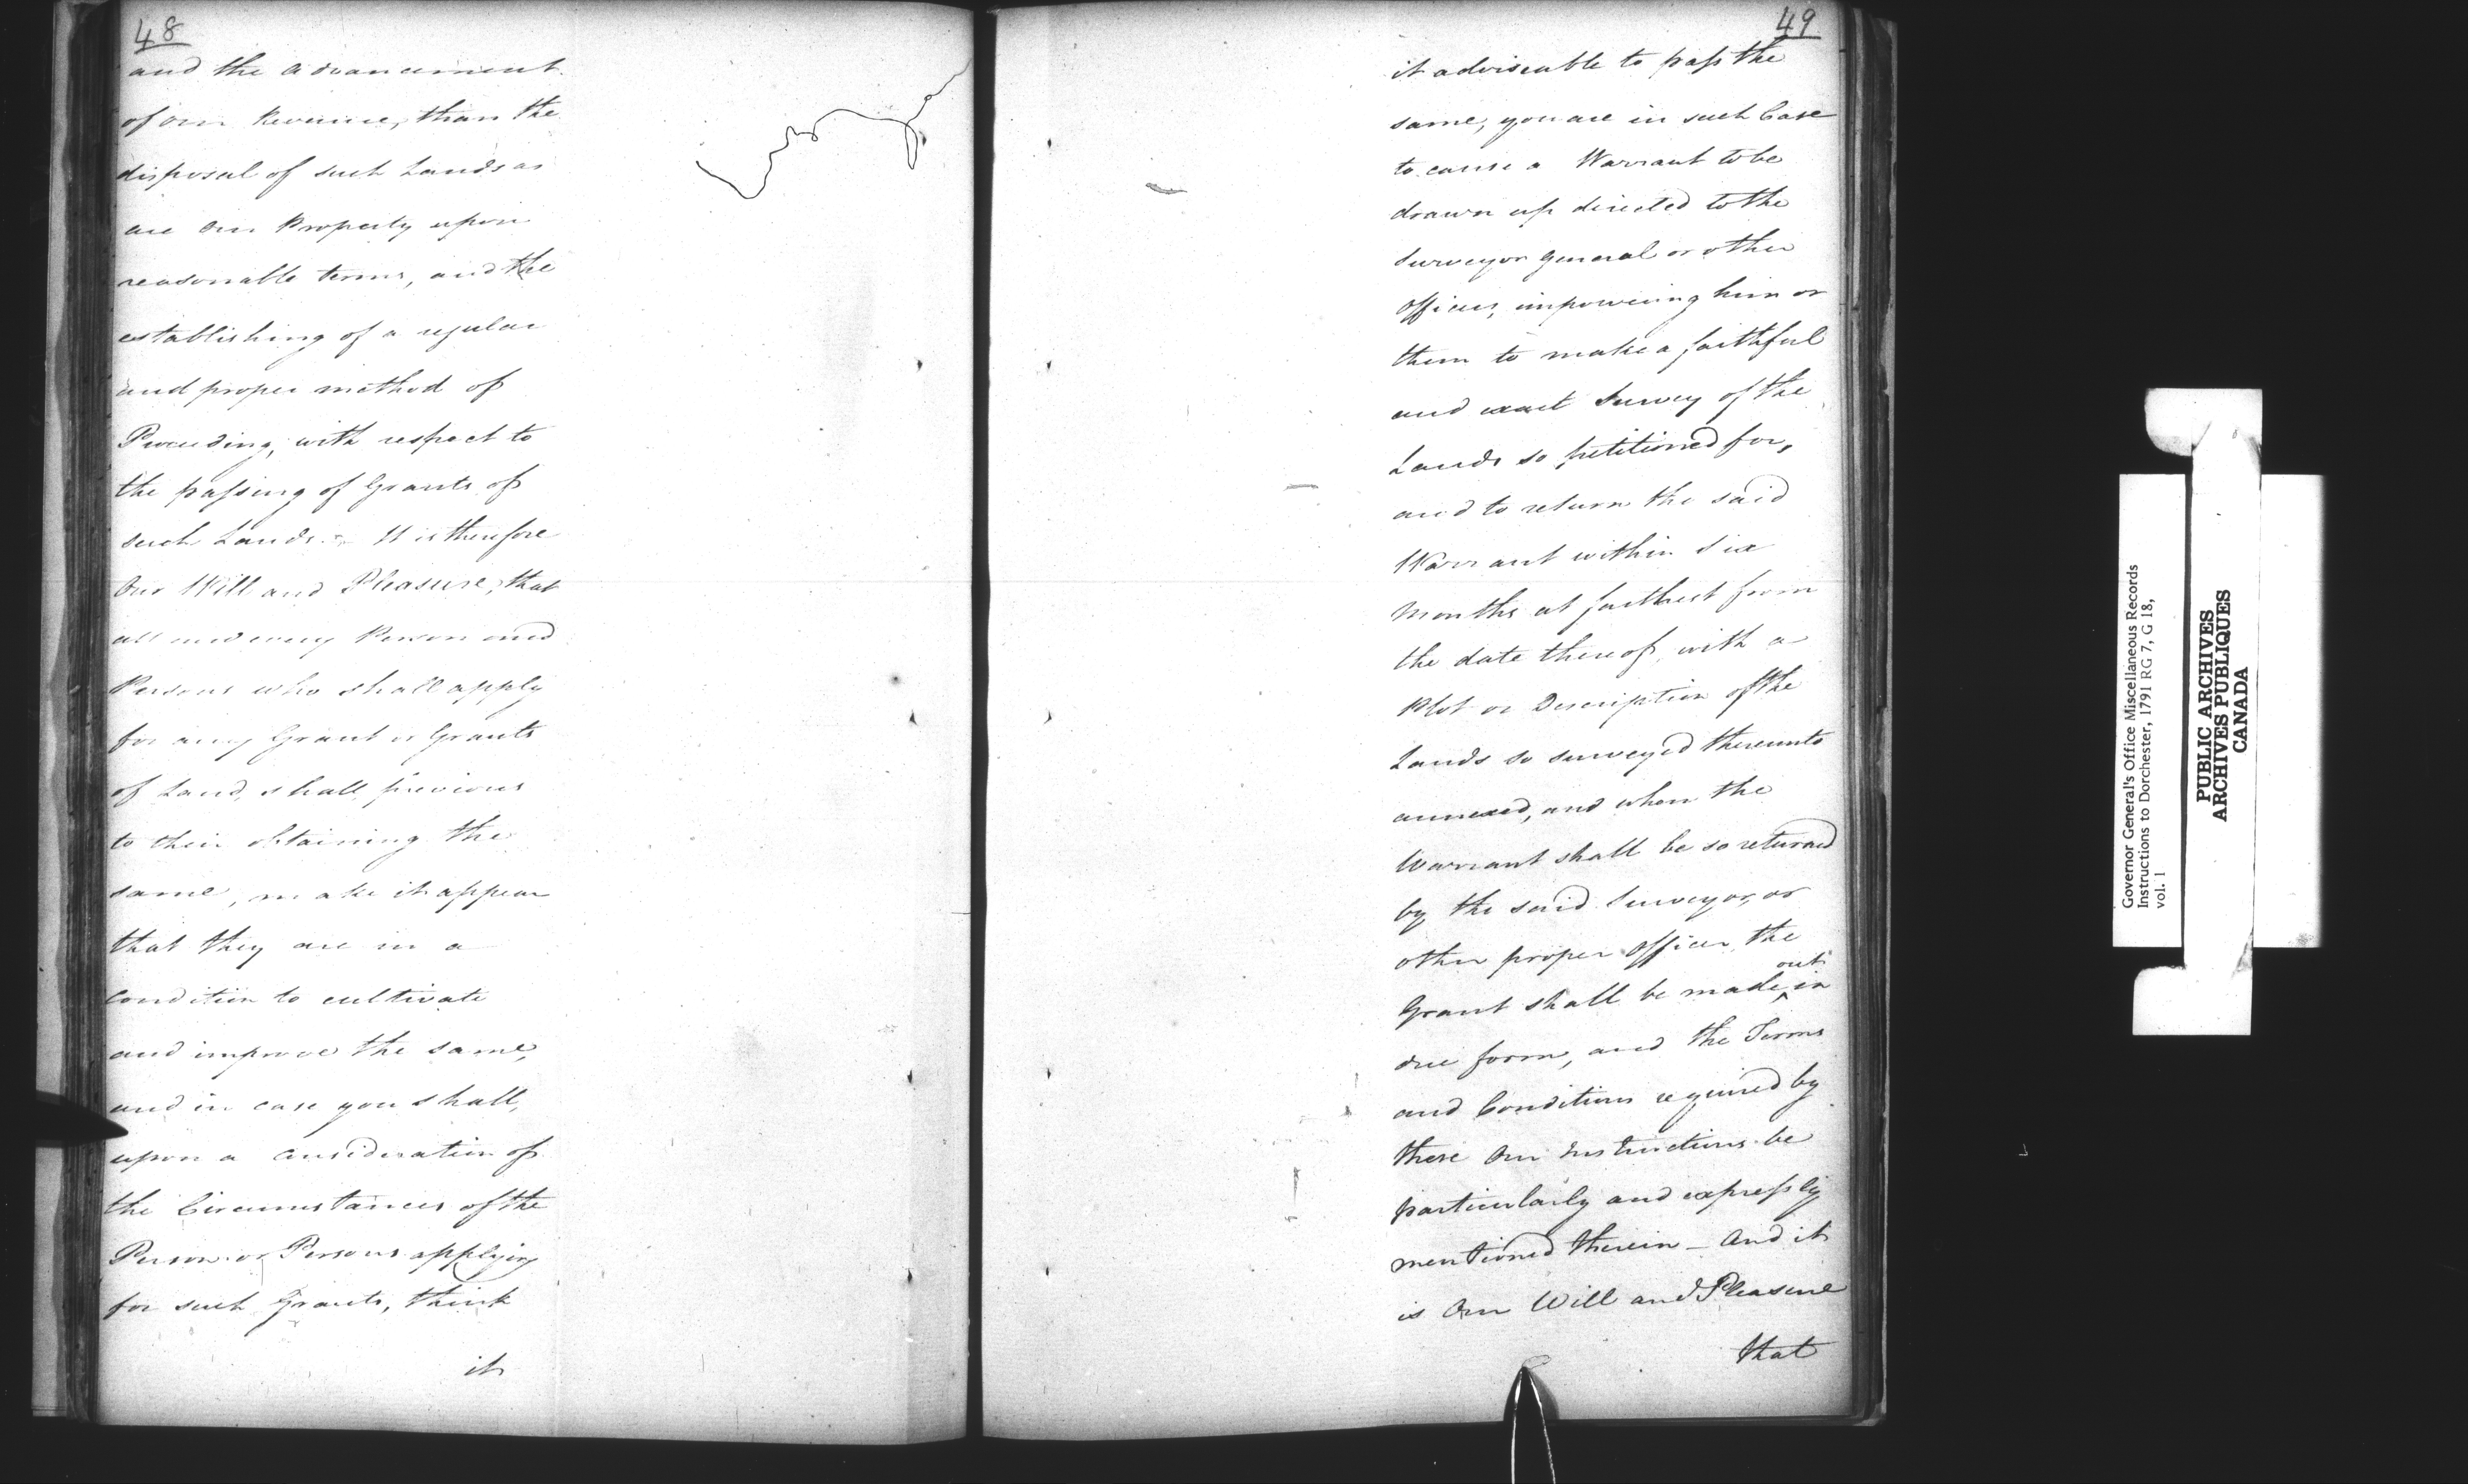 48
and the advancement
of our Revenue, than the
disposal of such Lands as
are Our Property upon
reasonable terms, and the
establishing of a regular
and proper method of
Proceeding, with respect to
the passing of Grants of
such Lands. - It is therefore
Our Will and Pleasure, that
all and every Person and
Persons who shall apply
for any Grant or Grants
of Land, shall previous
to their obtaining the
same, make it appear
that they are in a
Condition to cultivate
and improve the same,
and in case you shall,
upon a Consideration of
the Circumstances of the
Person or Persons applying
for such Grants, think
it
49
it adviseable to pass the
same, you are in such Case
to cause a Warrant to be
drawn up directed to the
Surveyor General or other
Officers, impowering him or
them to make a faithful
and exact Survey of the
Lands so petitioned for,
and to return the said
Warrant within six
Months at furthest from
the date thereof, with a
Plot or Description of the
Lands so surveyed thereunto
annexed, and when the
Warrant shall be so returned
by the said Surveyor, or
other proper Officer, the
Grant shall be made out in
due form, and the Terms
and Conditions required by
these Our Instructions be
particularly and expressly
mentioned therein - And it
is Our Will and Pleasure
that
Governor General's Office Miscellaneous Records
Instructions to Dorchester, 1791 RG 7, G 18,
vol. 1
PUBLIC ARCHIVES
ARCHIVES PUBLIQUES
CANADA